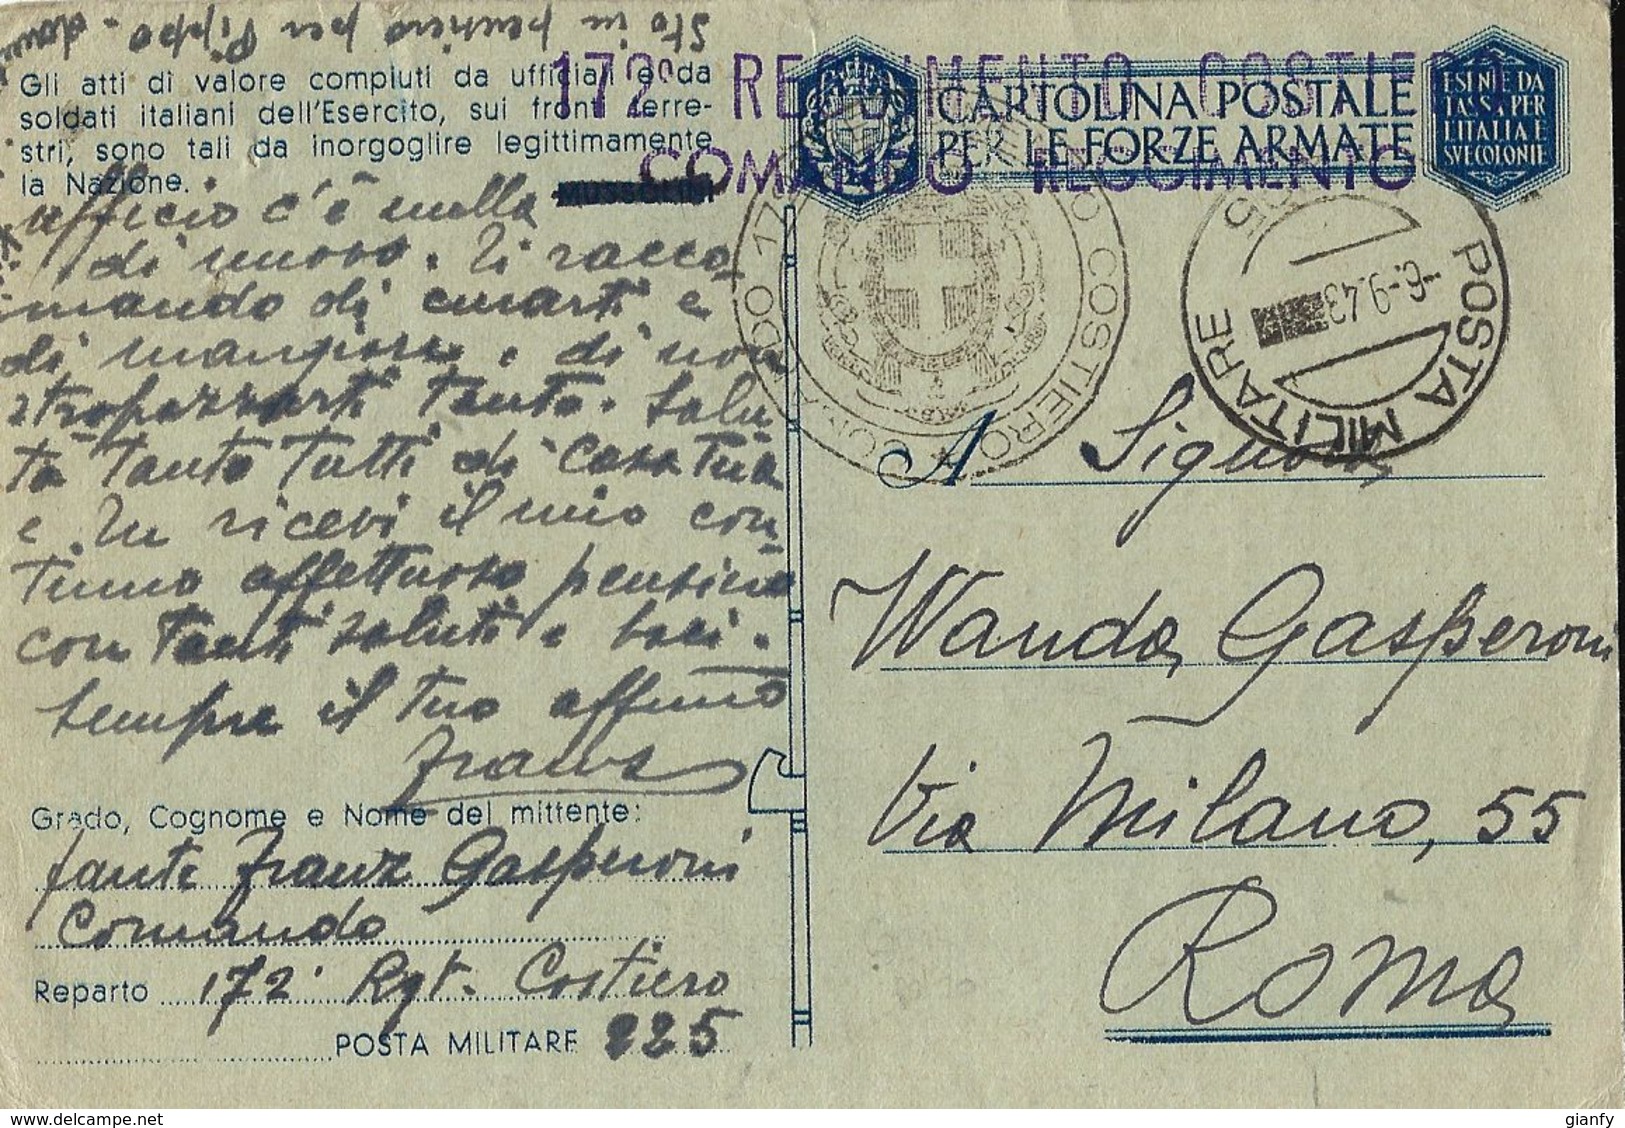 Sto in pensiero per Pippo -
Gli atti di valore compiuti da ufficiali e da
soldati italiani dell'Esercito, sui fronti terre-
stri, sono tali da inorgoglire legittimamente
la Nazione.
MUSSOLINI
ufficio c'è nulla
di nuovo. Ti racco-
mando di curarti e
di mangiare e di non
strapazzarti tanto. Salu-
ta tanto tutti di casa tua
e Tu ricevi il mio con-
tinuo affettuoso pensiero
con tanti saluti e baci.
sempre il tuo aff.mo
Franz
Grado, Cognome e Nome del mittente:
fante Franz Gasperoni
Comando
Reparto 172° Rgt. Costiero
POSTA MILITARE 225
172° REGGIMENTO COSTIERO
COMANDO REGGIMENTO
CARTOLINA POSTALE
PER LE FORZE ARMATE
ESENTE DA
TASSA PER
L'ITALIA E
SVE COLONIE
COMANDO 17 COSTIERO
POSTA MILITARE
-6.-9.43
A Signora
Wanda Gasperoni
Via Milano, 55
Roma
gianfy